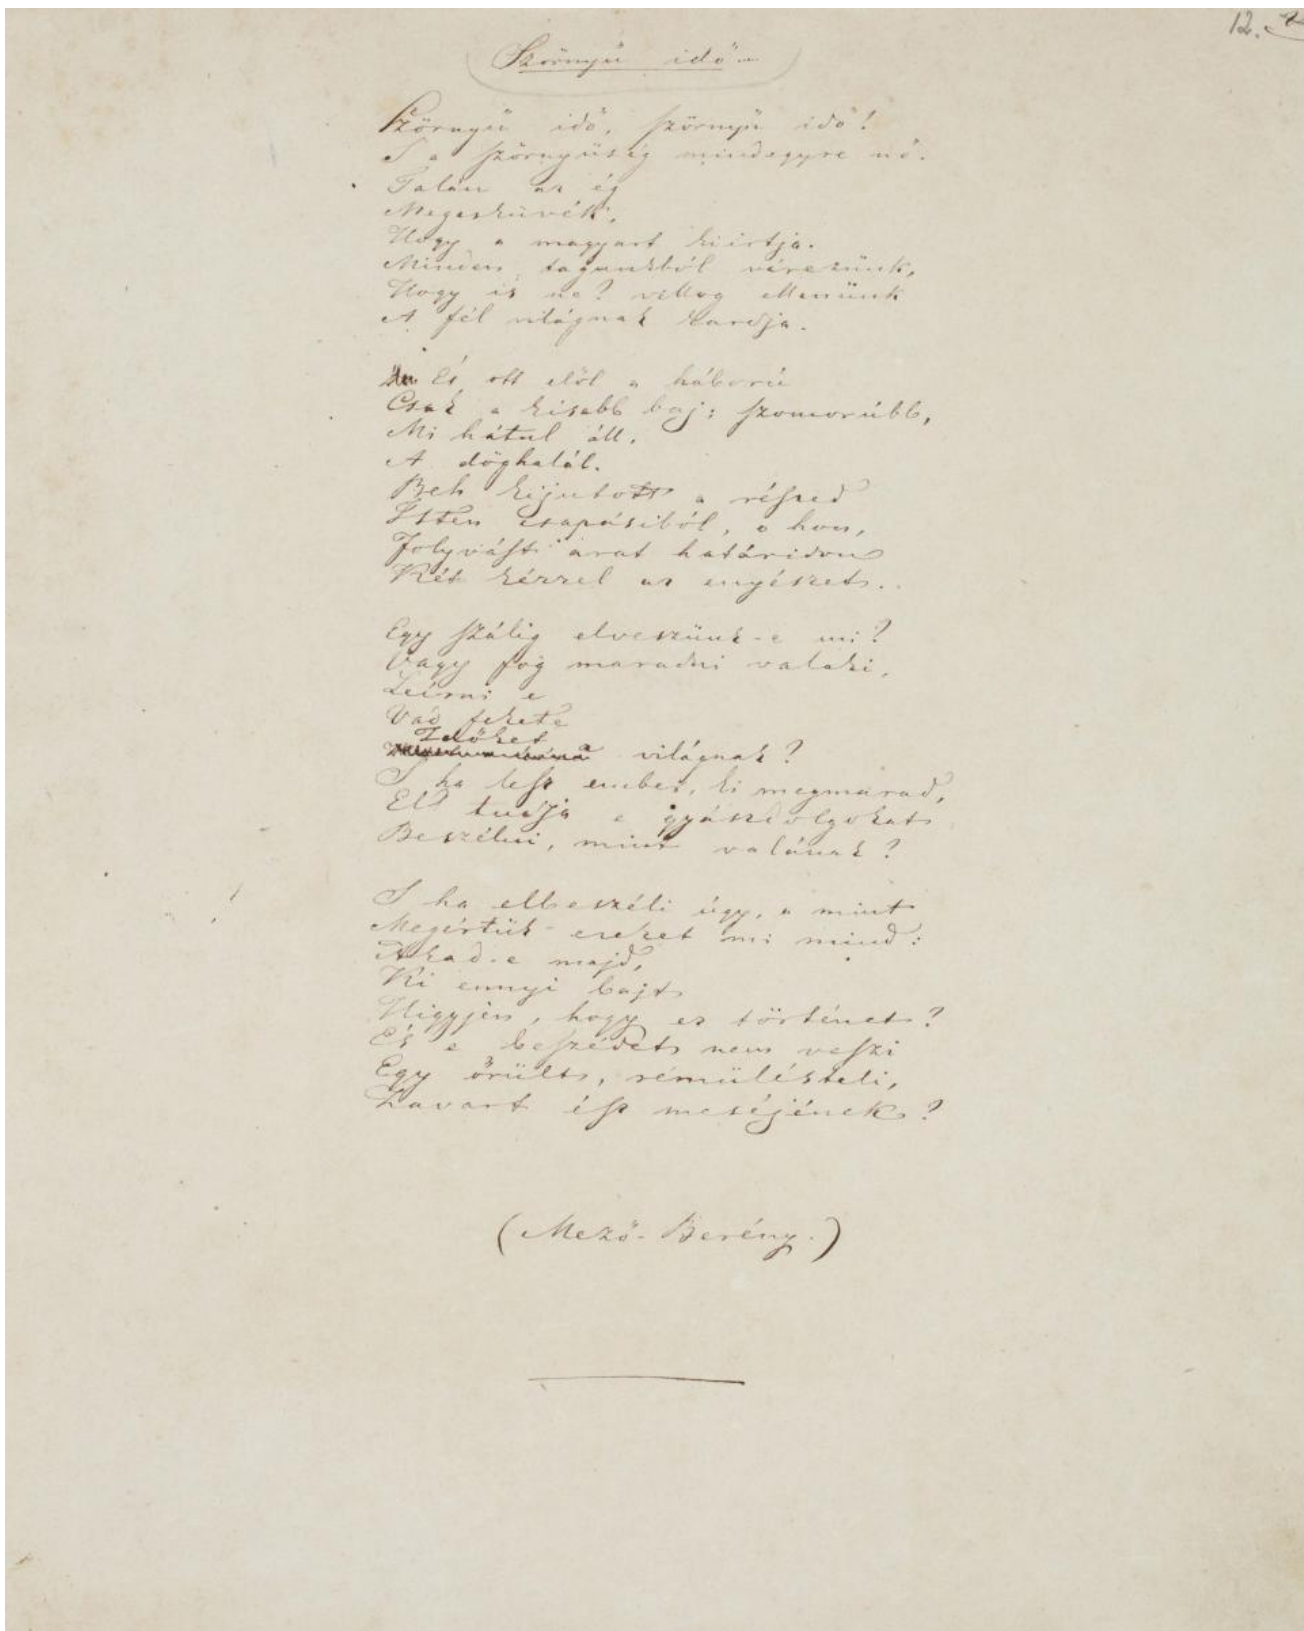 12.
Szörnyű idő...
Szörnyű idő, szörnyű idő!
S a szörnyűség mindegyre nő.
Talán az ég
Megesküvék,
Hogy a magyart kiirtja.
Minden tagunkból vérezünk,
Hogy is ne? villog ellenünk
A fél világnak kardja.
És ott elől a háború
Csak a kisebb baj; szomorúbb,
Mi hátul áll,
A döghalál.
Beh kijutott a részed
Isten csapásiból, o hon,
Folyvást arat határidon
Két kézzel az enyészet..
Egy szálig elveszünk-e mi?
Vagy fog maradni valaki,
Leírni e
Vad fekete
Időket
a világnak?
S ha lesz ember, ki megmarad,
El tudja e gyászdolgokat
Beszélni, mint valának?
S ha elbeszéli úgy, a mint
Megértük ezeket mi mind:
Akad-e majd,
Ki ennyi bajt
Higyjen, hogy ez történet?
És e beszédet nem veszi
Egy őrült, rémülésteli,
Zavart ész meséjének?
(Mező-Berény.)